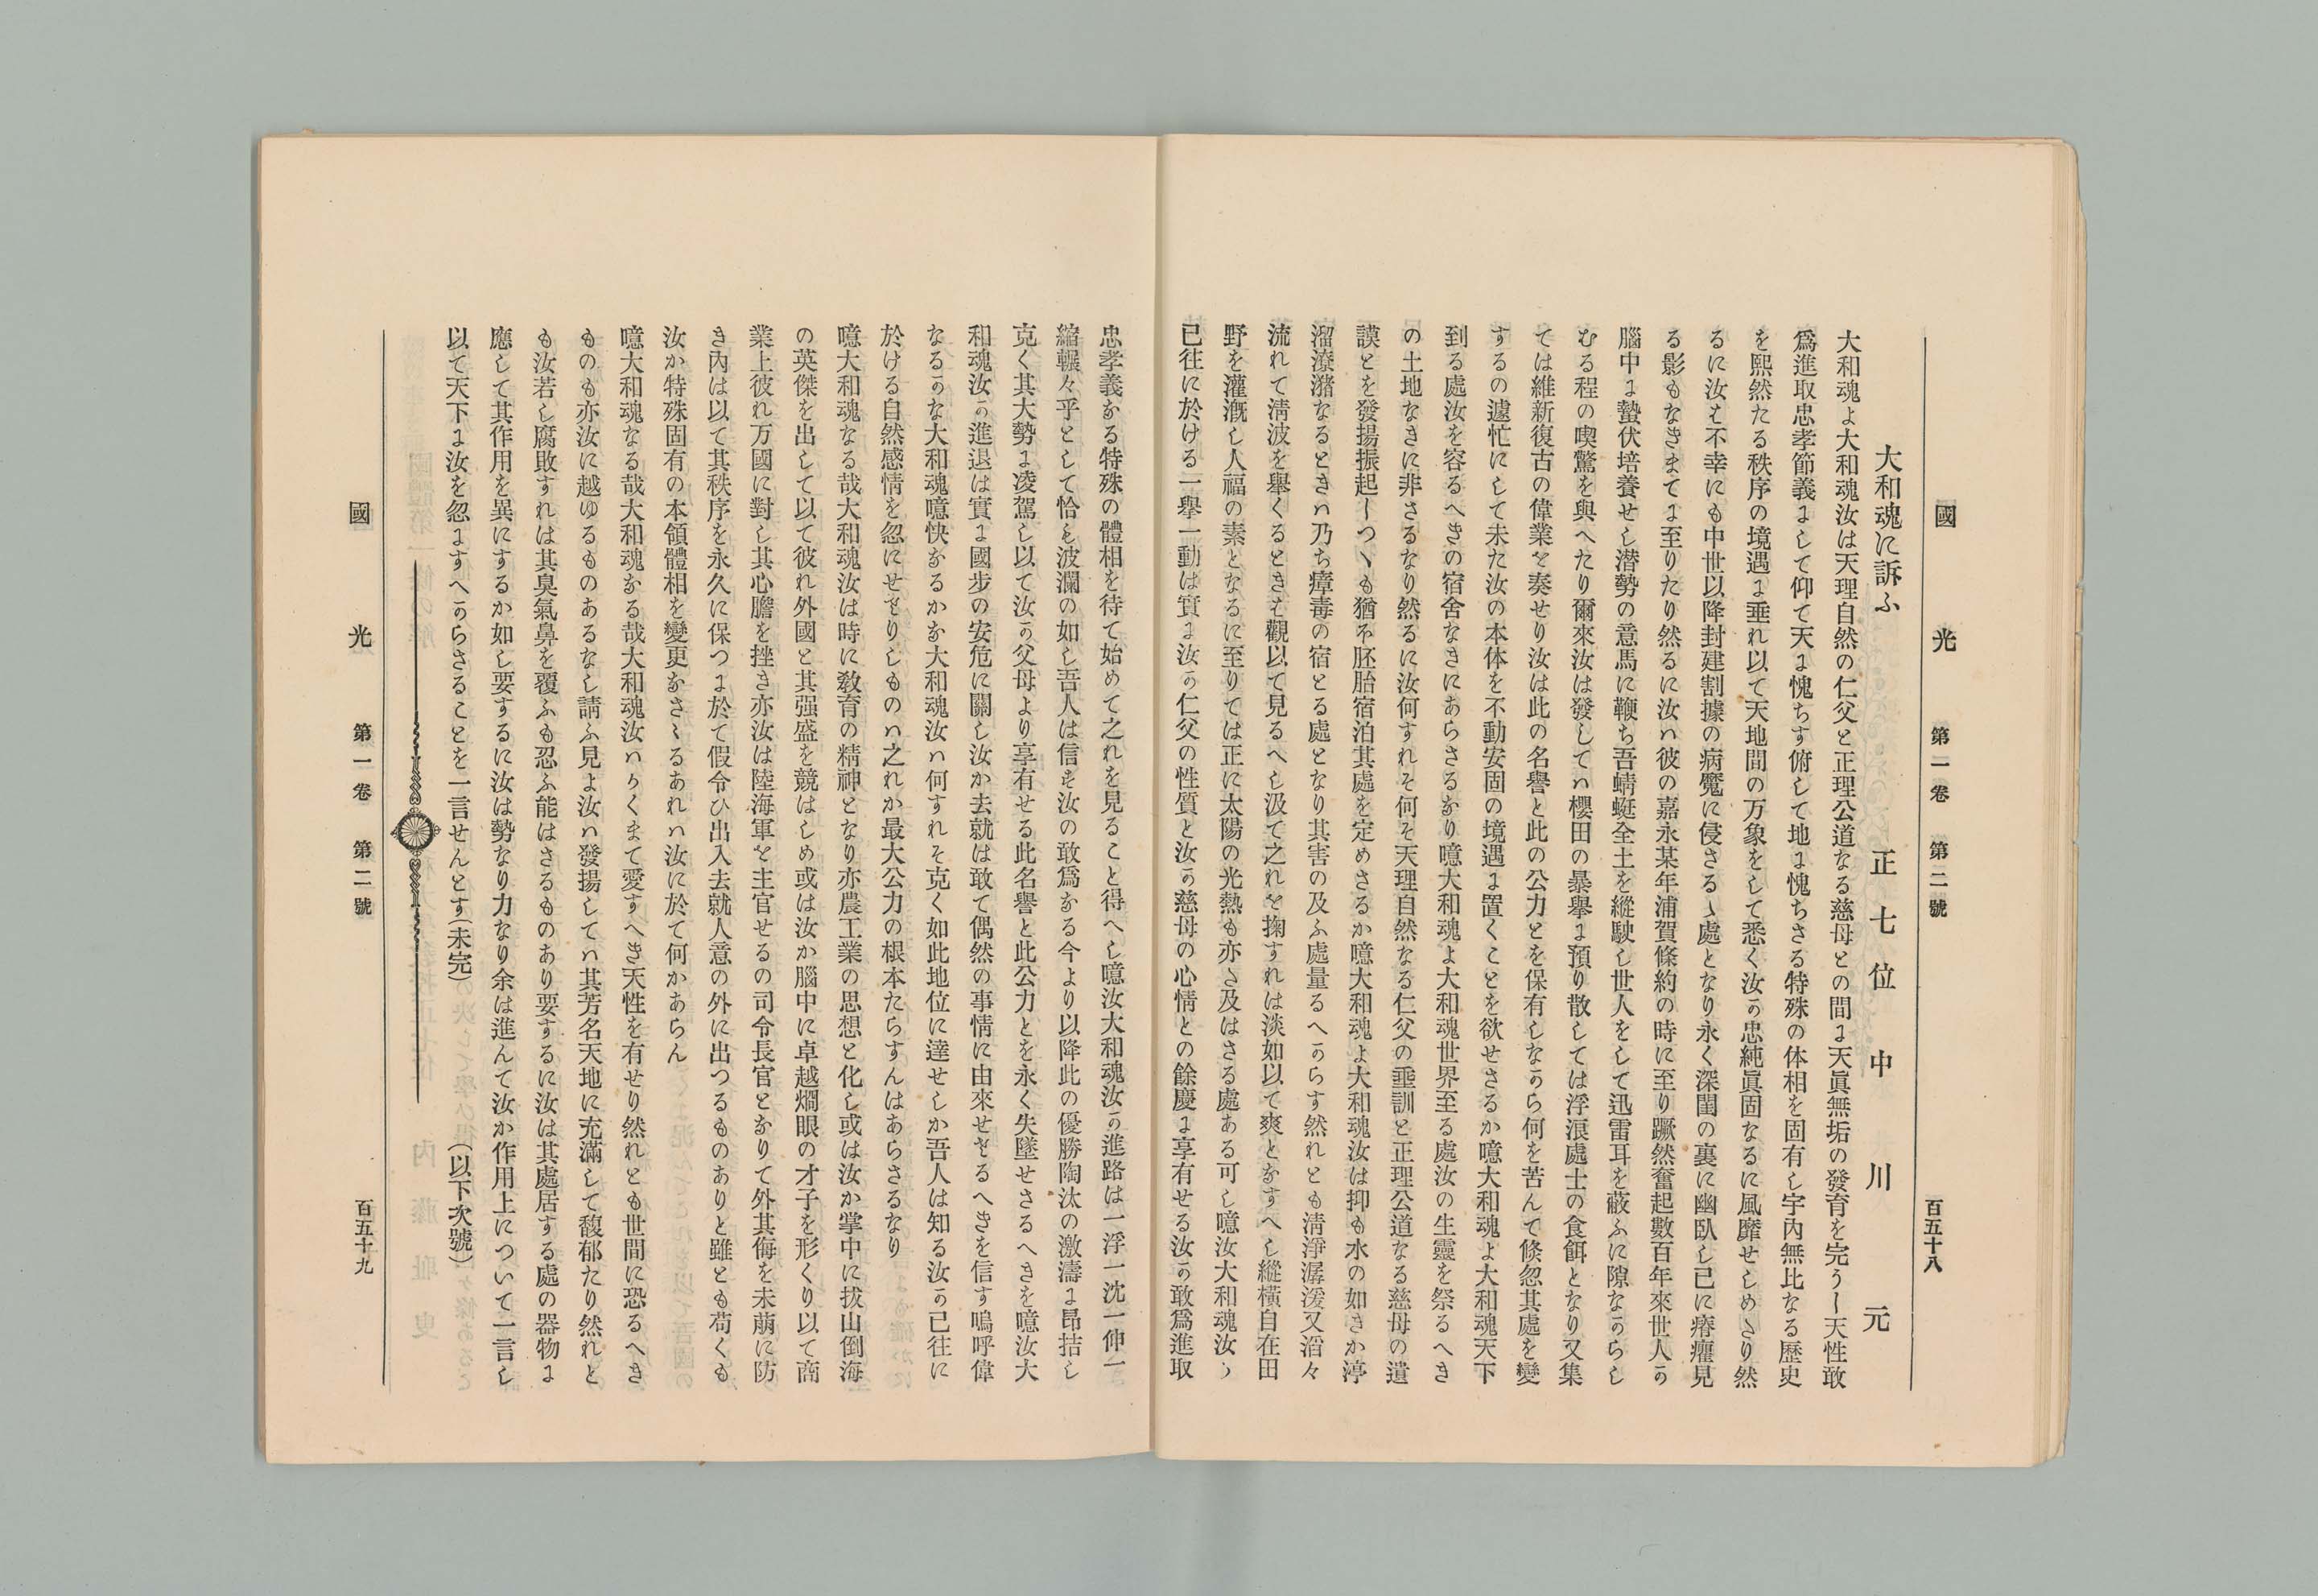 國光 第一卷 第二號 百五十八
大和魂に訴ふ
正七位 中川元
大和魂よ大和魂汝は天理自然の仁父と正理公道なる慈母との間に天眞無垢の發育を完うし天性敢
爲進取忠孝節義にして仰て天に愧ちす俯して地に愧ちさる特殊の体相を固有し宇內無比なる歷史
を熙然たる秩序の境遇に垂れ以て天地間の万象をして悉く汝か忠純眞固なるに風靡せしめさり然
るに汝は不幸にも中世以降封建割據の病魔に侵さるゝ處となり永く深閨の裏に幽臥し已に瘠癯見
る影もなきまてに至りたり然るに汝ハ彼の嘉永某年浦賀條約の時に至り蹶然奮起數百年來世人か
腦中に蟄伏培養せし潜勢の意馬に鞭ち吾蜻蜓全土を縱駛し世人をして迅雷耳を蔽ふに隙なからし
むる程の喫驚を與へたり爾來汝は發してハ櫻田の暴擧に預り散しては浮浪處士の食餌となり又集
ては維新復古の偉業を奏せり汝は此の名譽と此の公力とを保有しなから何を苦んて倐忽其處を變
するの遽忙にして未た汝の本体を不動安固の境遇に置くことを欲せさるか噫大和魂よ大和魂天下
到る處汝を容るへきの宿舍なきにあらさるなり噫大和魂よ大和魂世界至る處汝の生靈を祭るへき
の土地なきに非さるなり然るに汝何すれそ何そ天理自然なる仁父の垂訓と正理公道なる慈母の遺
謨とを發揚振起しつゝも猶不胚胎宿泊其處を定めさるか噫大和魂よ大和魂汝は抑も水の如きか渟
溜潦潴なるときハ乃ち瘴毒の宿とる處となり其害の及ふ處量るへからす然れとも淸淨潺湲又滔々
流れて淸波を擧くるときは觀以て見るへし汲て之れを掬すれは淡如以て爽となすへし縱橫自在田
野を灌漑し人福の素となるに至りては正に太陽の光熱も亦さ及はさる處ある可し噫汝大和魂汝か
已往に於ける一擧一動は實に汝か仁父の性質と汝か慈母の心情との餘慶に享有せる汝か敢爲進取
忠孝義なる特殊の體相を待て始めて之れを見ること得へし噫汝大和魂汝か進路は一浮一沈一伸一
縮輾々乎として恰も波瀾の如し吾人は信す汝の敢爲なる今より以降此の優勝陶汰の激濤に昂拮し
克く其大勢に凌駕し以て汝か父母より享有せる此名譽と此公力とを永く失墜せさるへきを噫汝大
和魂汝か進退は實に國步の安危に關し汝か去就は敢て偶然の事情に由來せさるへきを信す嗚呼偉
なるかな大和魂噫快なるかな大和魂汝ハ何すれそ克く如此地位に達せしか吾人は知る汝か已往に
於ける自然感情を忽にせさりしものハ之れか最大公力の根本たらすんはあらさるなり
噫大和魂なる哉大和魂汝は時に敎育の精神となり亦農工業の思想と化し或は汝か掌中に拔山倒海
の英傑を出して以て彼れ外國と其强盛を競はしめ或は汝か腦中に卓越烱眼の才子を形くり以て商
業上彼れ万國に對し其心膽を挫き亦汝は陸海軍を主官せるの司令長官となりて外其侮を未萠に防
き內は以て其秩序を永久に保つに於て假令ひ出入去就人意の外に出つるものありと雖とも苟くも
汝か特殊固有の本領體相を變更なさゝるあれハ汝に於て何かあらん
噫大和魂なる哉大和魂なる哉大和魂汝ハかくまて愛すへき天性を有せり然れとも世間に恐るへき
ものも亦汝に越ゆるものあるなし請ふ見よ汝ハ發揚してハ其芳名天地に充滿して馥郁たり然れと
も汝若し腐敗すれは其臭氣鼻を覆ふも忍ふ能はさるものあり要するに汝は其處居する處の器物に
應して其作用を異にするか如し要するに汝は勢なり力なり余は進んて汝か作用上について一言し
以て天下に汝を忽にすへからさることを一言せんとす(未完) (以下次號)
國光 第一卷 第二號 百五十九